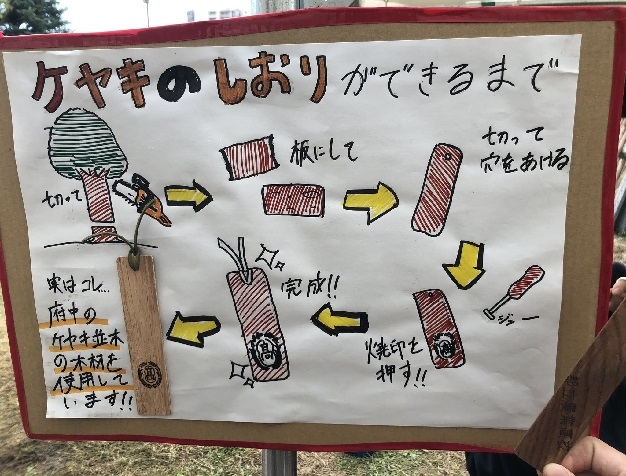 ケヤキのしおりができるまで
切って
板にして
切って
穴をあける
ジュー
焼印を
押す!!
完成!!
実はコレ...
府中の
ケヤキ並木
の木材を
使用して
います!!